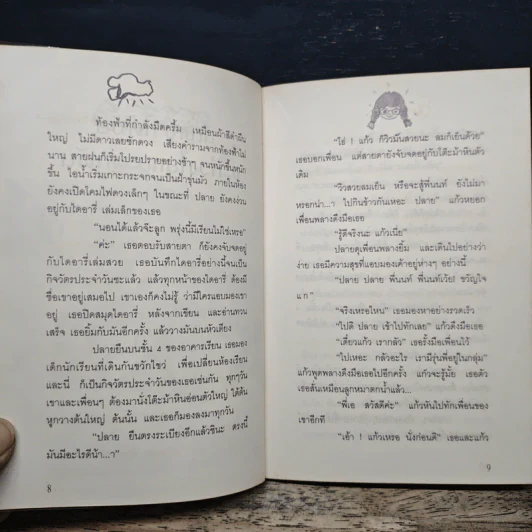 ท้องฟ้าที่กำลังมืดครึ้ม เหมือนผ้าสีดำผืน
ใหญ่ ไม่มีดาวเลยซักดวง เสียงคำรามจากท้องฟ้าไม่
นาน สายฝนก็เริ่มโปรยปรายอย่างช้าๆ จนหนักขึ้นหนัก
ขึ้น ไอน้ำเริ่มเกาะกระจกจนเป็นฝ้าขุ่นมัว ภายในห้อง
ยังคงเปิดโคมไฟดวงเล็กๆ ในขณะที่ ปลาย ยังคงง่วน
อยู่กับไดอารี่ เล่มเล็กของเธอ
"นอนได้แล้วจ้ะลูก พรุ่งนี้มีเรียนไม่ใช่เหรอ"
"ค่ะ" เธอตอบรับสายตา ก็ยังคงจับจดอยู่
กับไดอารี่เล่มสวย เธอบันทึกไดอารี่อย่างนี้จนเป็น
กิจวัตรประจำวันซะแล้ว แล้วทุกหน้าของไดอารี่ ต้องมี
ชื่อเขาอยู่เสมอไป เขาเองก็คงไม่รู้ ว่ามีใครแอบมองเขา
อยู่ เธอปิดสมุดไดอารี่ หลังจากเขียน และอ่านทวน
เสร็จ เธอยิ้มกับมันอีกครั้ง แล้ววางมันบนหัวเตียง
ปลายยืนบนชั้น 4 ของอาคารเรียน เธอมอง
เด็กนักเรียนที่เดินกันขวักไขว่ เพื่อเปลี่ยนห้องเรียน
และนี่ ก็เป็นกิจวัตรประจำวันของเธอเช่นกัน ทุกๆวัน
เขาและเพื่อนๆ ต้องมานั่งโต๊ะม้าหินอ่อนตัวใหญ่ ใต้ต้น
หูกวางต้นใหญ่ ต้นนั้น และเธอก็มองลงมาทุกวัน
"ปลาย ยืนตรงระเบียงอีกแล้วซินะ ตรงนี้
มันมีอะไรดีน้า...า"
8
"โธ่ ! แก้ว ก็วิวมันสวยนะ ลมก็เย็นด้วย"
เธอบอกเพื่อน แต่สายตายังจับจดอยู่กับโต๊ะม้าหินตัว
เดิม
"วิวสวยลมเย็น หรือจะสู้พี่นนท์ ยังไม่มา
หรอกน่า...า ไปกินข้าวกันเหอะ ปลาย" แก้วหยอก
เพื่อนพลางดึงมือเธอ
"รู้ดีจริงนะ แก้วเนี่ย"
ปลายดุเพื่อนพลางยิ้ม และเดินไปอย่างว่า
ง่าย เธอมีความสุขที่แอบมองเค้าอยู่ห่างๆ อย่างนี้
"ปลาย ปลาย พี่นนท์ พี่นนท์เว้ย! ขวัญใจ
แก"
"จริงเหรอไหน" เธอมองหาอย่างรวดเร็ว
"ไปดิ ปลาย เข้าไปทักเลย" แก้วดึงมือเธอ
"เดี๋ยวแก้ว เรากลัว" เธอรั้งมือเพื่อนไว้
"ไปเหอะ กลัวอะไร เรามีรุ่นพี่อยู่ในกลุ่ม"
แก้วพูดพลางดึงมือเธอไปอีกครั้ง แก้วจะรู้มั้ย เธอตัว
เธอสั่นเหมือนลูกหมาตกน้ำแล้ว...
"พี่เอ สวัสดีค่ะ" แก้วหันไปทักเพื่อนของ
เขาอีกที
"เอ้า ! แก้วเหรอ นั่งก่อนดิ" เธอและแก้ว
9